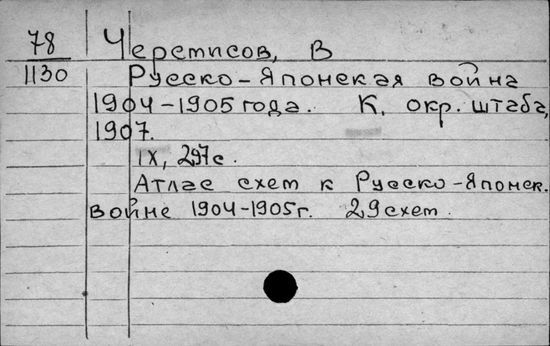 78 Черемисов, В
1130 Русско-Японская война
1904-1905 года. К. окр. штаба,
1907.
IX, 297с.
Атлас схем к Русско-Японск.
войне 1904-1905г. 29 схем.